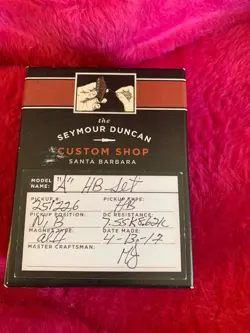 the
SEYMOUR DUNCAN
CUSTOM SHOP
SANTA BARBARA
MODEL NAME: "A" HB-Set
PICKUP #: PICKUP TYPE:
251226 HB
PICKUP POSITION: DC RESISTANCE:
N, B
MAGNET TYPE: DATE MADE:
4-13-17
MASTER CRAFTSMAN:
MJ